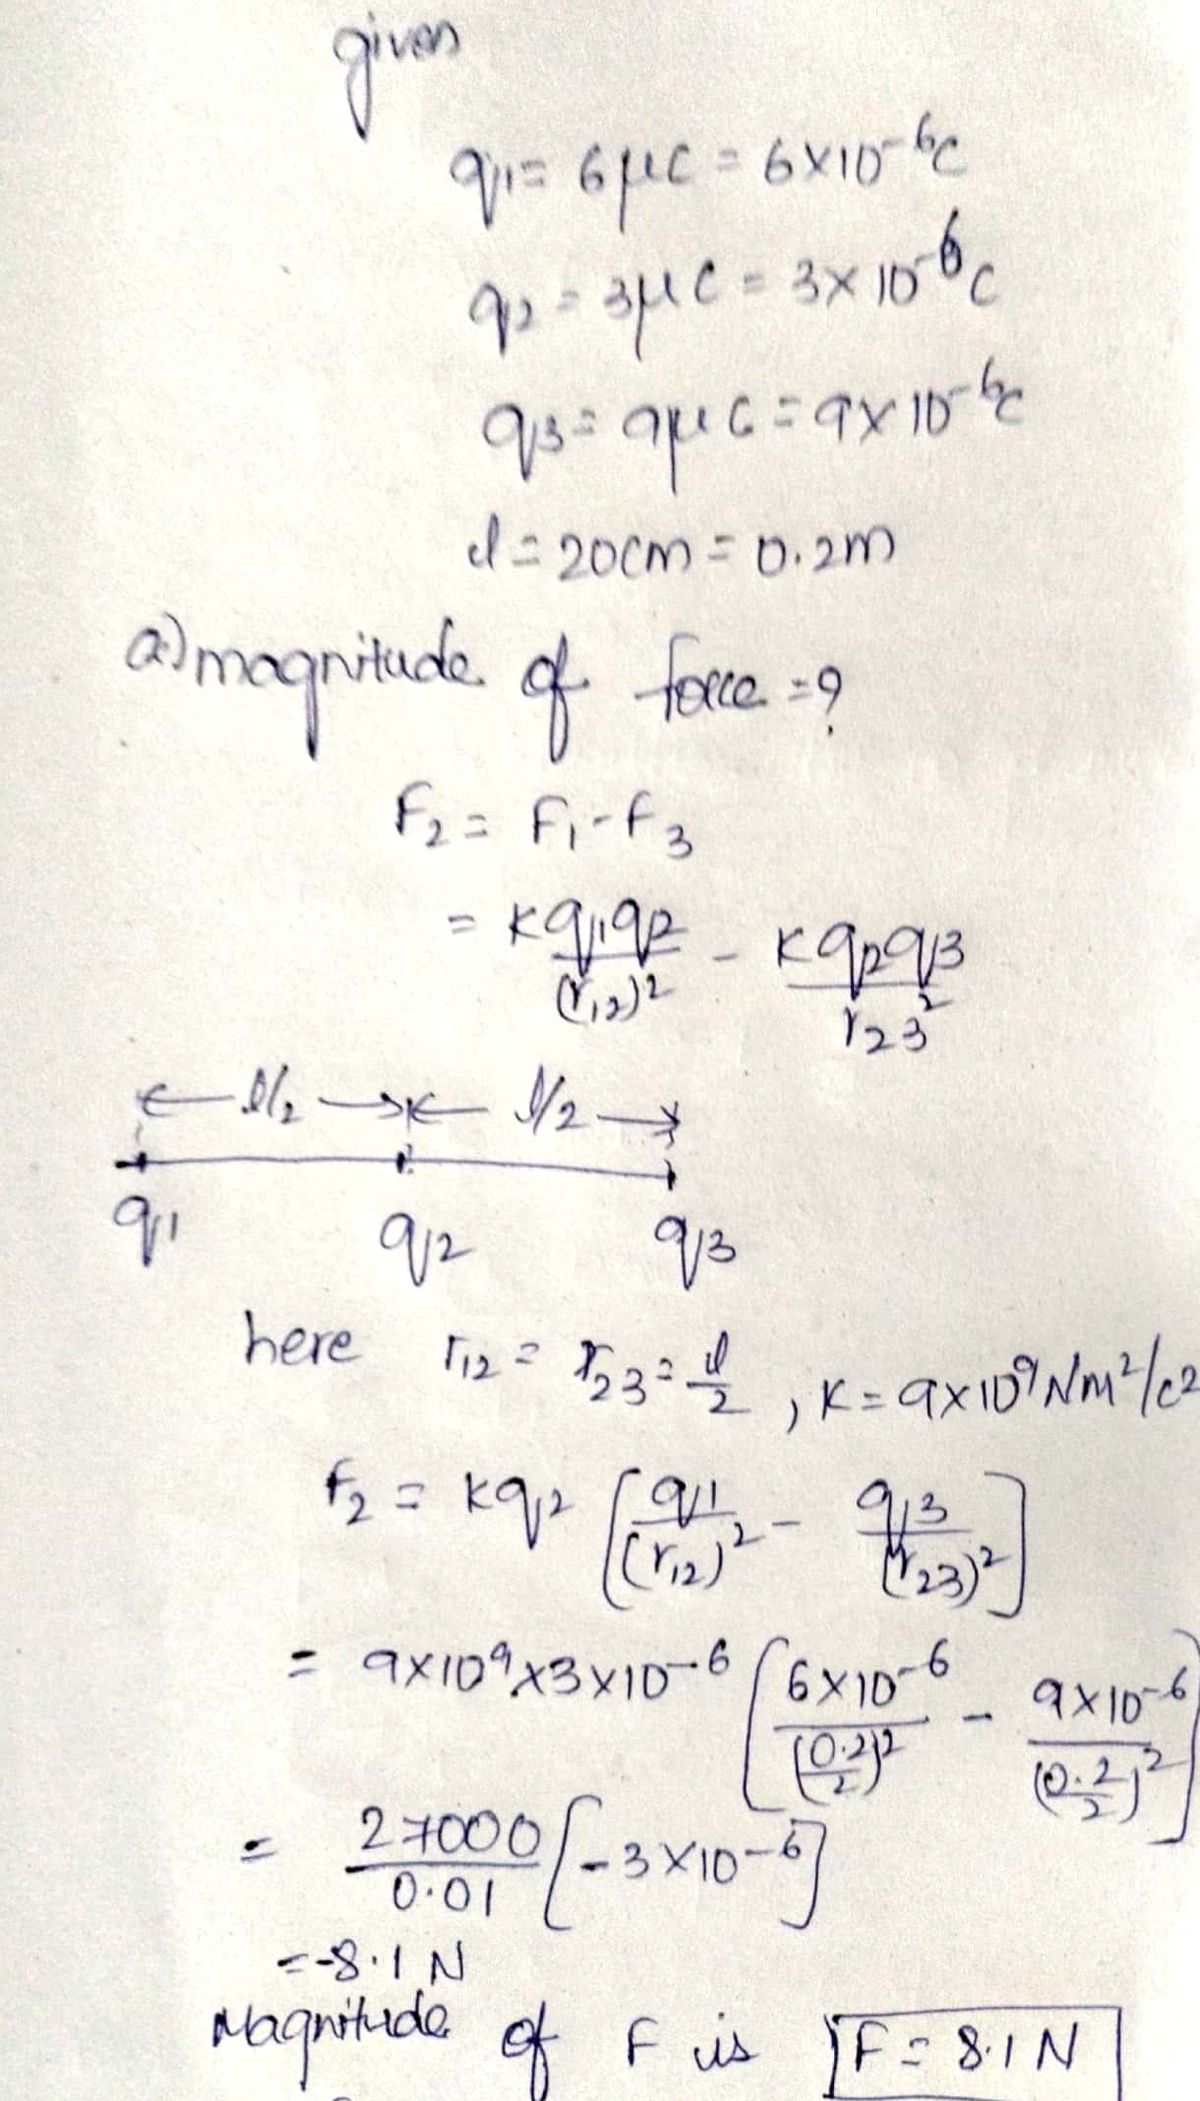 given
q1 = 6μC = 6×10^-6 C
q2 = 3μC = 3×10^-6 C
q3 = 9μC = 9×10^-6 C
d = 20cm = 0.2m
a) magnitude of force = ?
F2 = F1 - F3
= Kq1q2/(r12)^2 - Kq2q3/r23^2
d/2 d/2
q1 q2 q3
here r12 = r23 = d/2 , K = 9×10^9 Nm^2/c^2
F2 = Kq2 [q1/(r12)^2 - q3/(r23)^2]
= 9×10^9 × 3×10^-6 [6×10^-6/(0.2/2)^2 - 9×10^-6/(0.2/2)^2]
= 27000/0.01 [-3×10^-6]
= -8.1 N
Magnitude of F is F = 8.1 N